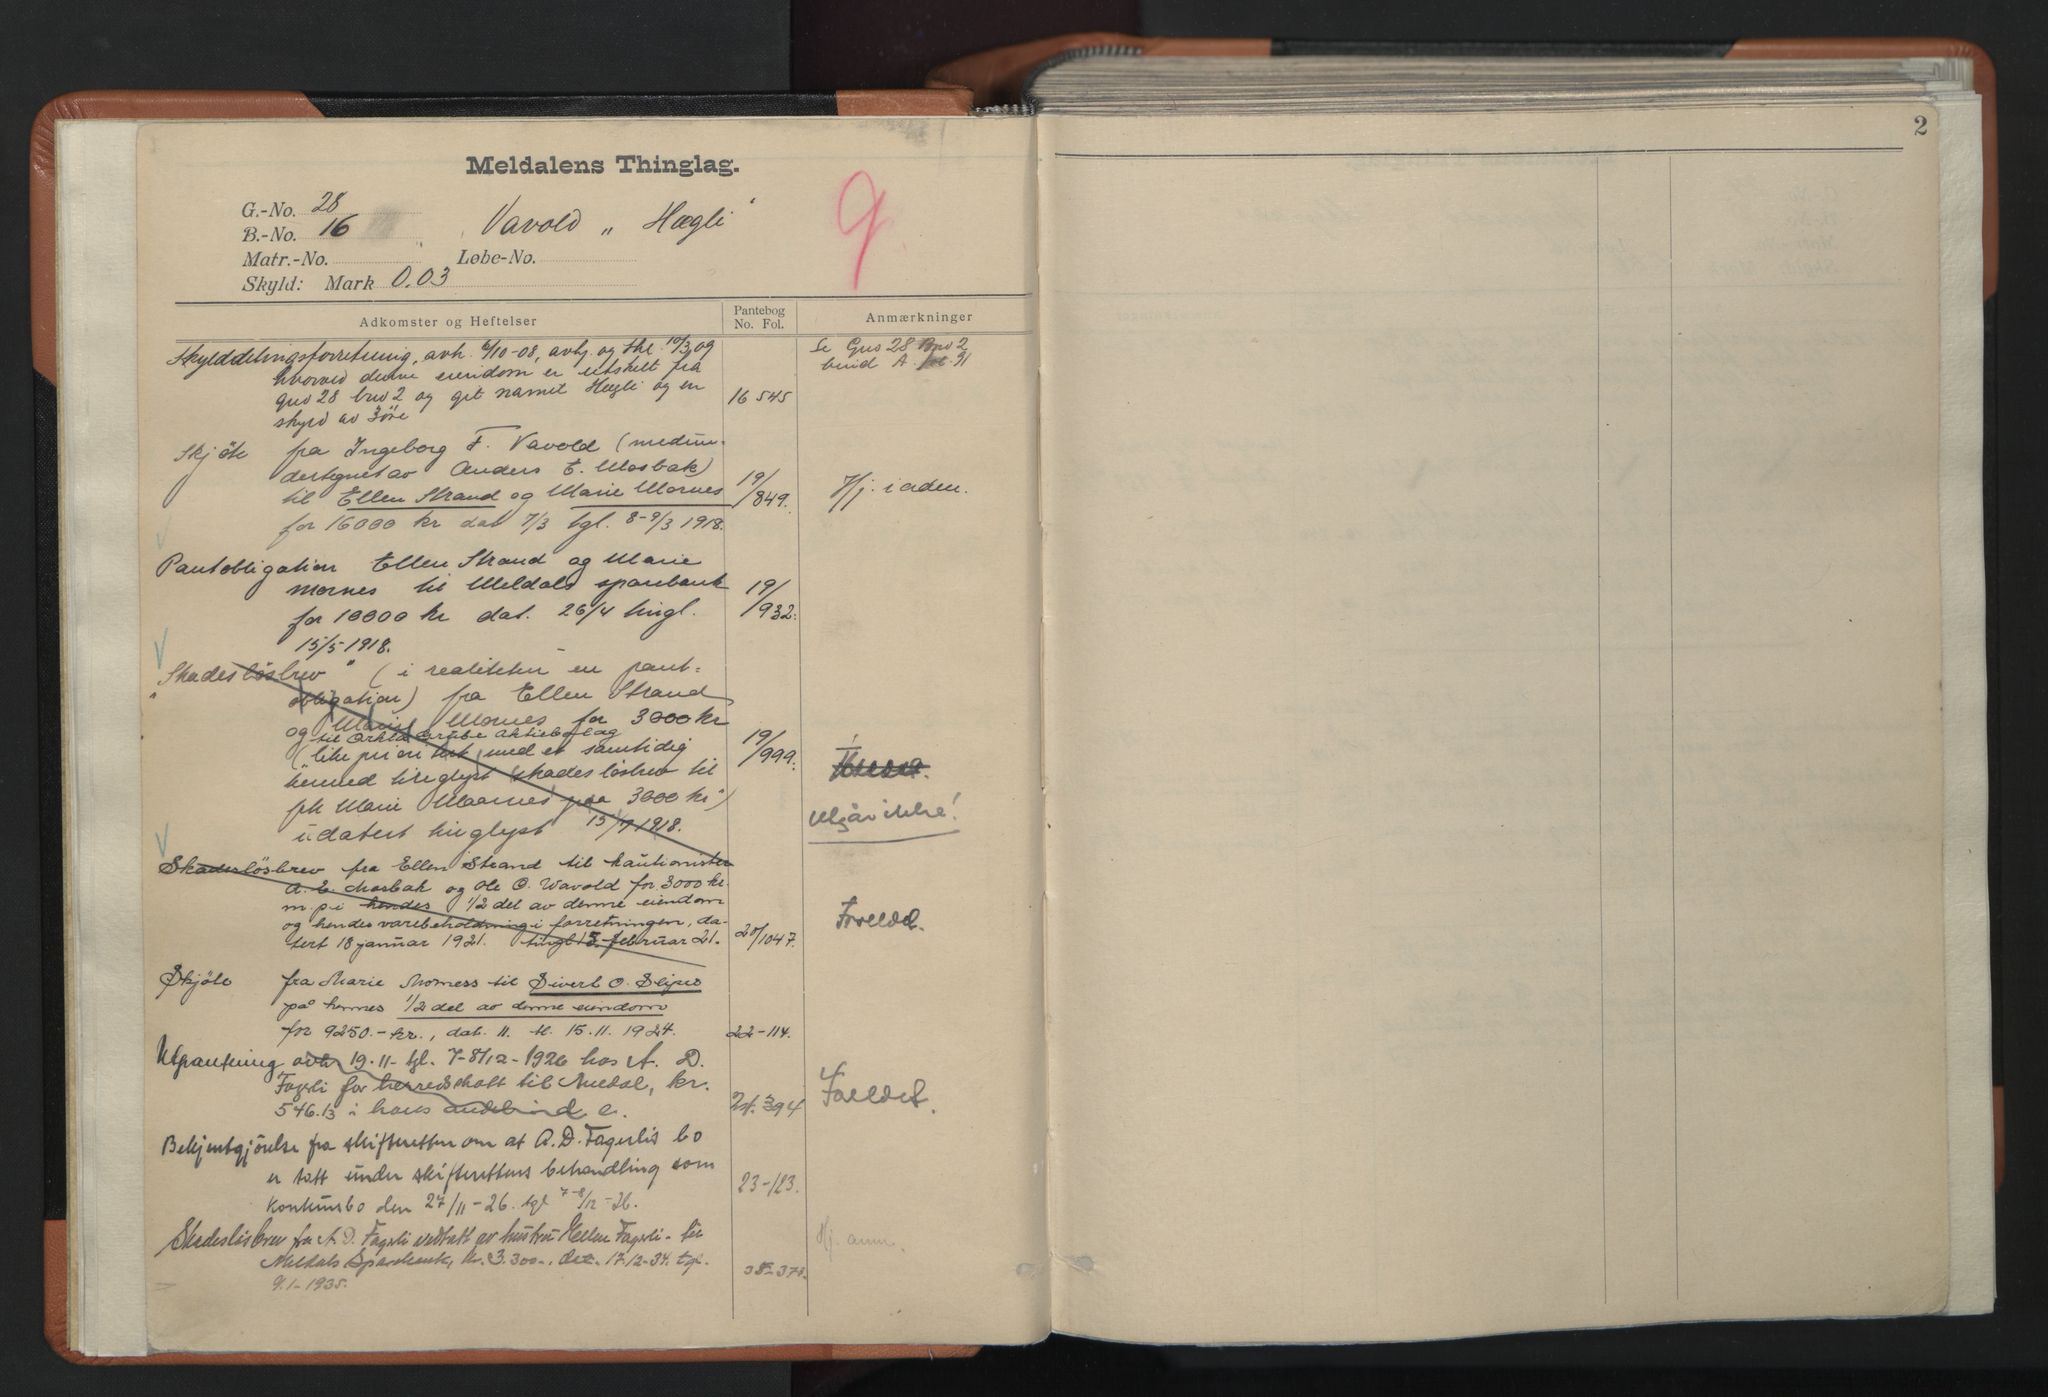 2
Meldalens Thinglag.
G.-No. 28
B.-No. 16 Vavold „ Hægli"
Matr.-No. Løbe-No.
Skyld: Mark 0.03
9
Adkomster og Heftelser
Pantebog
No. Fol.
Anmærkninger
Skylddelingsforretning, avh. 6/10-08, avhj. og thl. 10/3 09
hvorved denne eiendom er utskilt fra
gno 28 bno 2 og git navnet Hægli og en
skyld av 3 öre
16 545
Se Gno 28 Bno 2
bind A. fol. 91
Skjöte fra Ingeborg F. Vavold (medun-
dertegnet av Anders E. Mosbak)
til Ellen Strand og Marie Mornes
for 16000 kr dat 7/3 tgl. 8-9/3 1918.
19/849.
Hj. i aden.
Pantobligation Ellen Strand og Marie
Mornes til Meldals sparebank
for 10000 kr dat. 26/4 tingl.
15/5 1918.
19/932.
"Skadeslösbrev" (i realiteten en pant-
obligation) fra Ellen Strand
og Marie Mornes for 3000 kr
til Orkla Grube Aktiebolag
("like prioritert med et samtidig
hermed tinglyst skadeslösbrev til
frk Marie Mornes paa 3000 kr")
udatert tinglyst 15/7 1918.
19/999.
Utgår ikke!
Skadeslösbrev fra Ellen Strand til kautionister
A. E. Mosbak og Ole O. Wavold for 3000 kr.
m. p. i hendes 1/2 del av denne eiendom
og hendes varebeholdning i forretningen, da-
tert 18 januar 1921. tingl 15 februar 21.
20/1047.
Forældet.
Skjöte fra Marie Morness til Sivert O. Slipes
på hennes 1/2 del av denne eiendom
for 9250.- kr., dat. 11. tl. 15.11. 1924.
22-114.
Utpantning avh 19-11- tgl. 7-8/12-1926 hos A. D.
Fagerli for herredskatt til Meldal, kr.
546.13 i hans
394
Foreldet.
Bekjentgjörelse fra skifteretten om at A. D. Fagerlis bo
er tatt under skifterettens behandling som
konkursbo den 27/11-26. tgl 7-8/12-26.
23-123.
Skadeslösbrev fra A. D. Fagerli vedtatt av hustru Ellen Fagerli - til
Meldals Sparebank, kr. 3.300-, dat. 17-12-34. tgl.
9.1-1935.
Hj. anm.